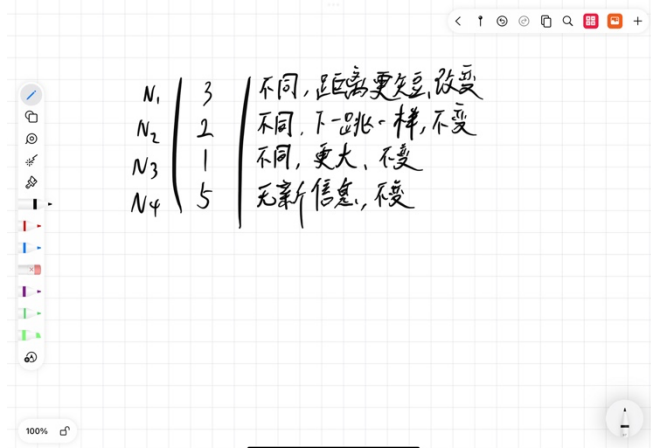 N₁ 3 不同,距离更短,改变
N₂ 2 不同,下一跳一样,不变
N3 1 不同,更大、不变
N4 5 无新信息,不变
100%